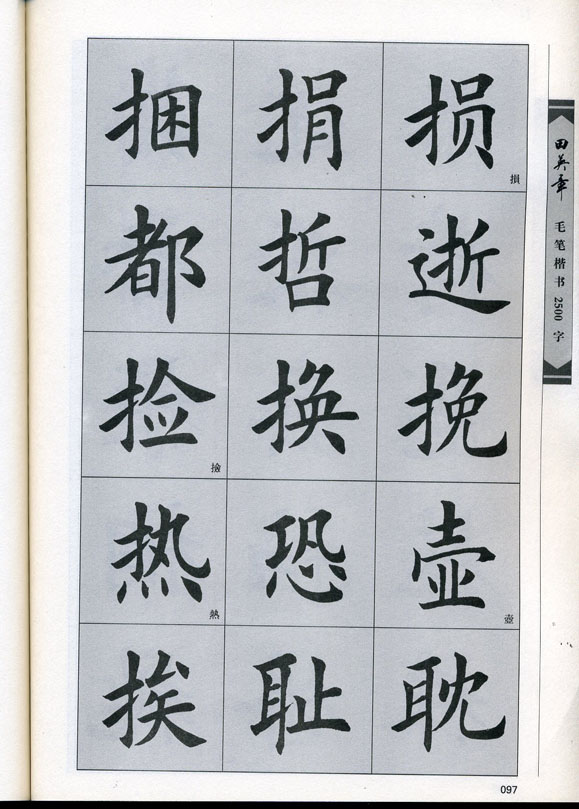 捆 捐 损
損
都 哲 逝
捡 换 挽
撿
热 恐 壶
熱 壺
挨 耻 耽
田英章 毛笔楷书 2500 字
097